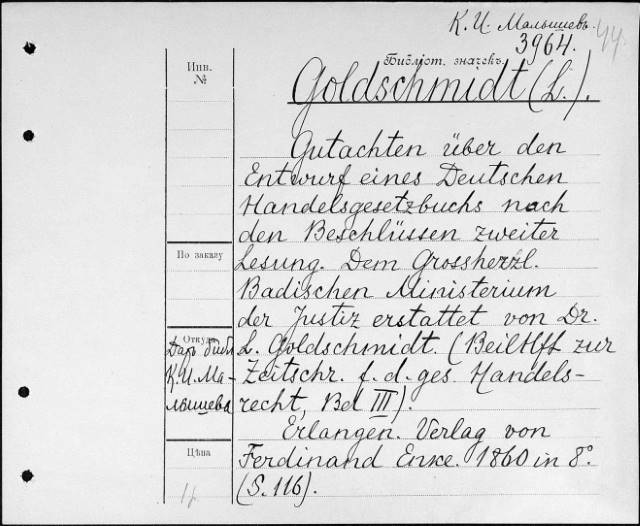 К. И. Малышевъ.
3964. 44
Библіот. значекъ.
Инв.
№
Goldschmidt (L.).
Gutachten über den
Entwurf eines Deutschen
Handelsgesetzbuchs nach
den Beschlüssen zweiter
По заказу
Lesung. Dem Grossherzl.
Badischen Ministerium
der Justiz erstattet von Dr.
Откуда
Даръ библ
К. И. Ма-
лышева
L. Goldschmidt. (Beilhft zur
Zeitschr. f. d. ges. Handels-
recht, Bd III).
Erlangen. Verlag von
Цѣна
Ferdinand Enke. 1860 in 8°.
(S. 116).